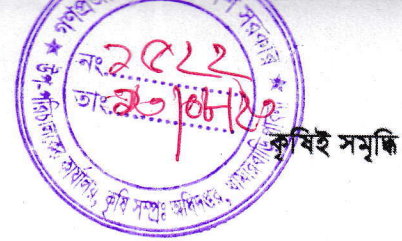 গণপ্রজাতন্ত্রী বাংলাদেশ সরকার
নং ২৫২২
তাং
উপ-পরিচালকের কার্যালয়, কৃষি সম্প্রঃ অধিদপ্তর, খামারবাড়ি
কৃষিই সমৃদ্ধি